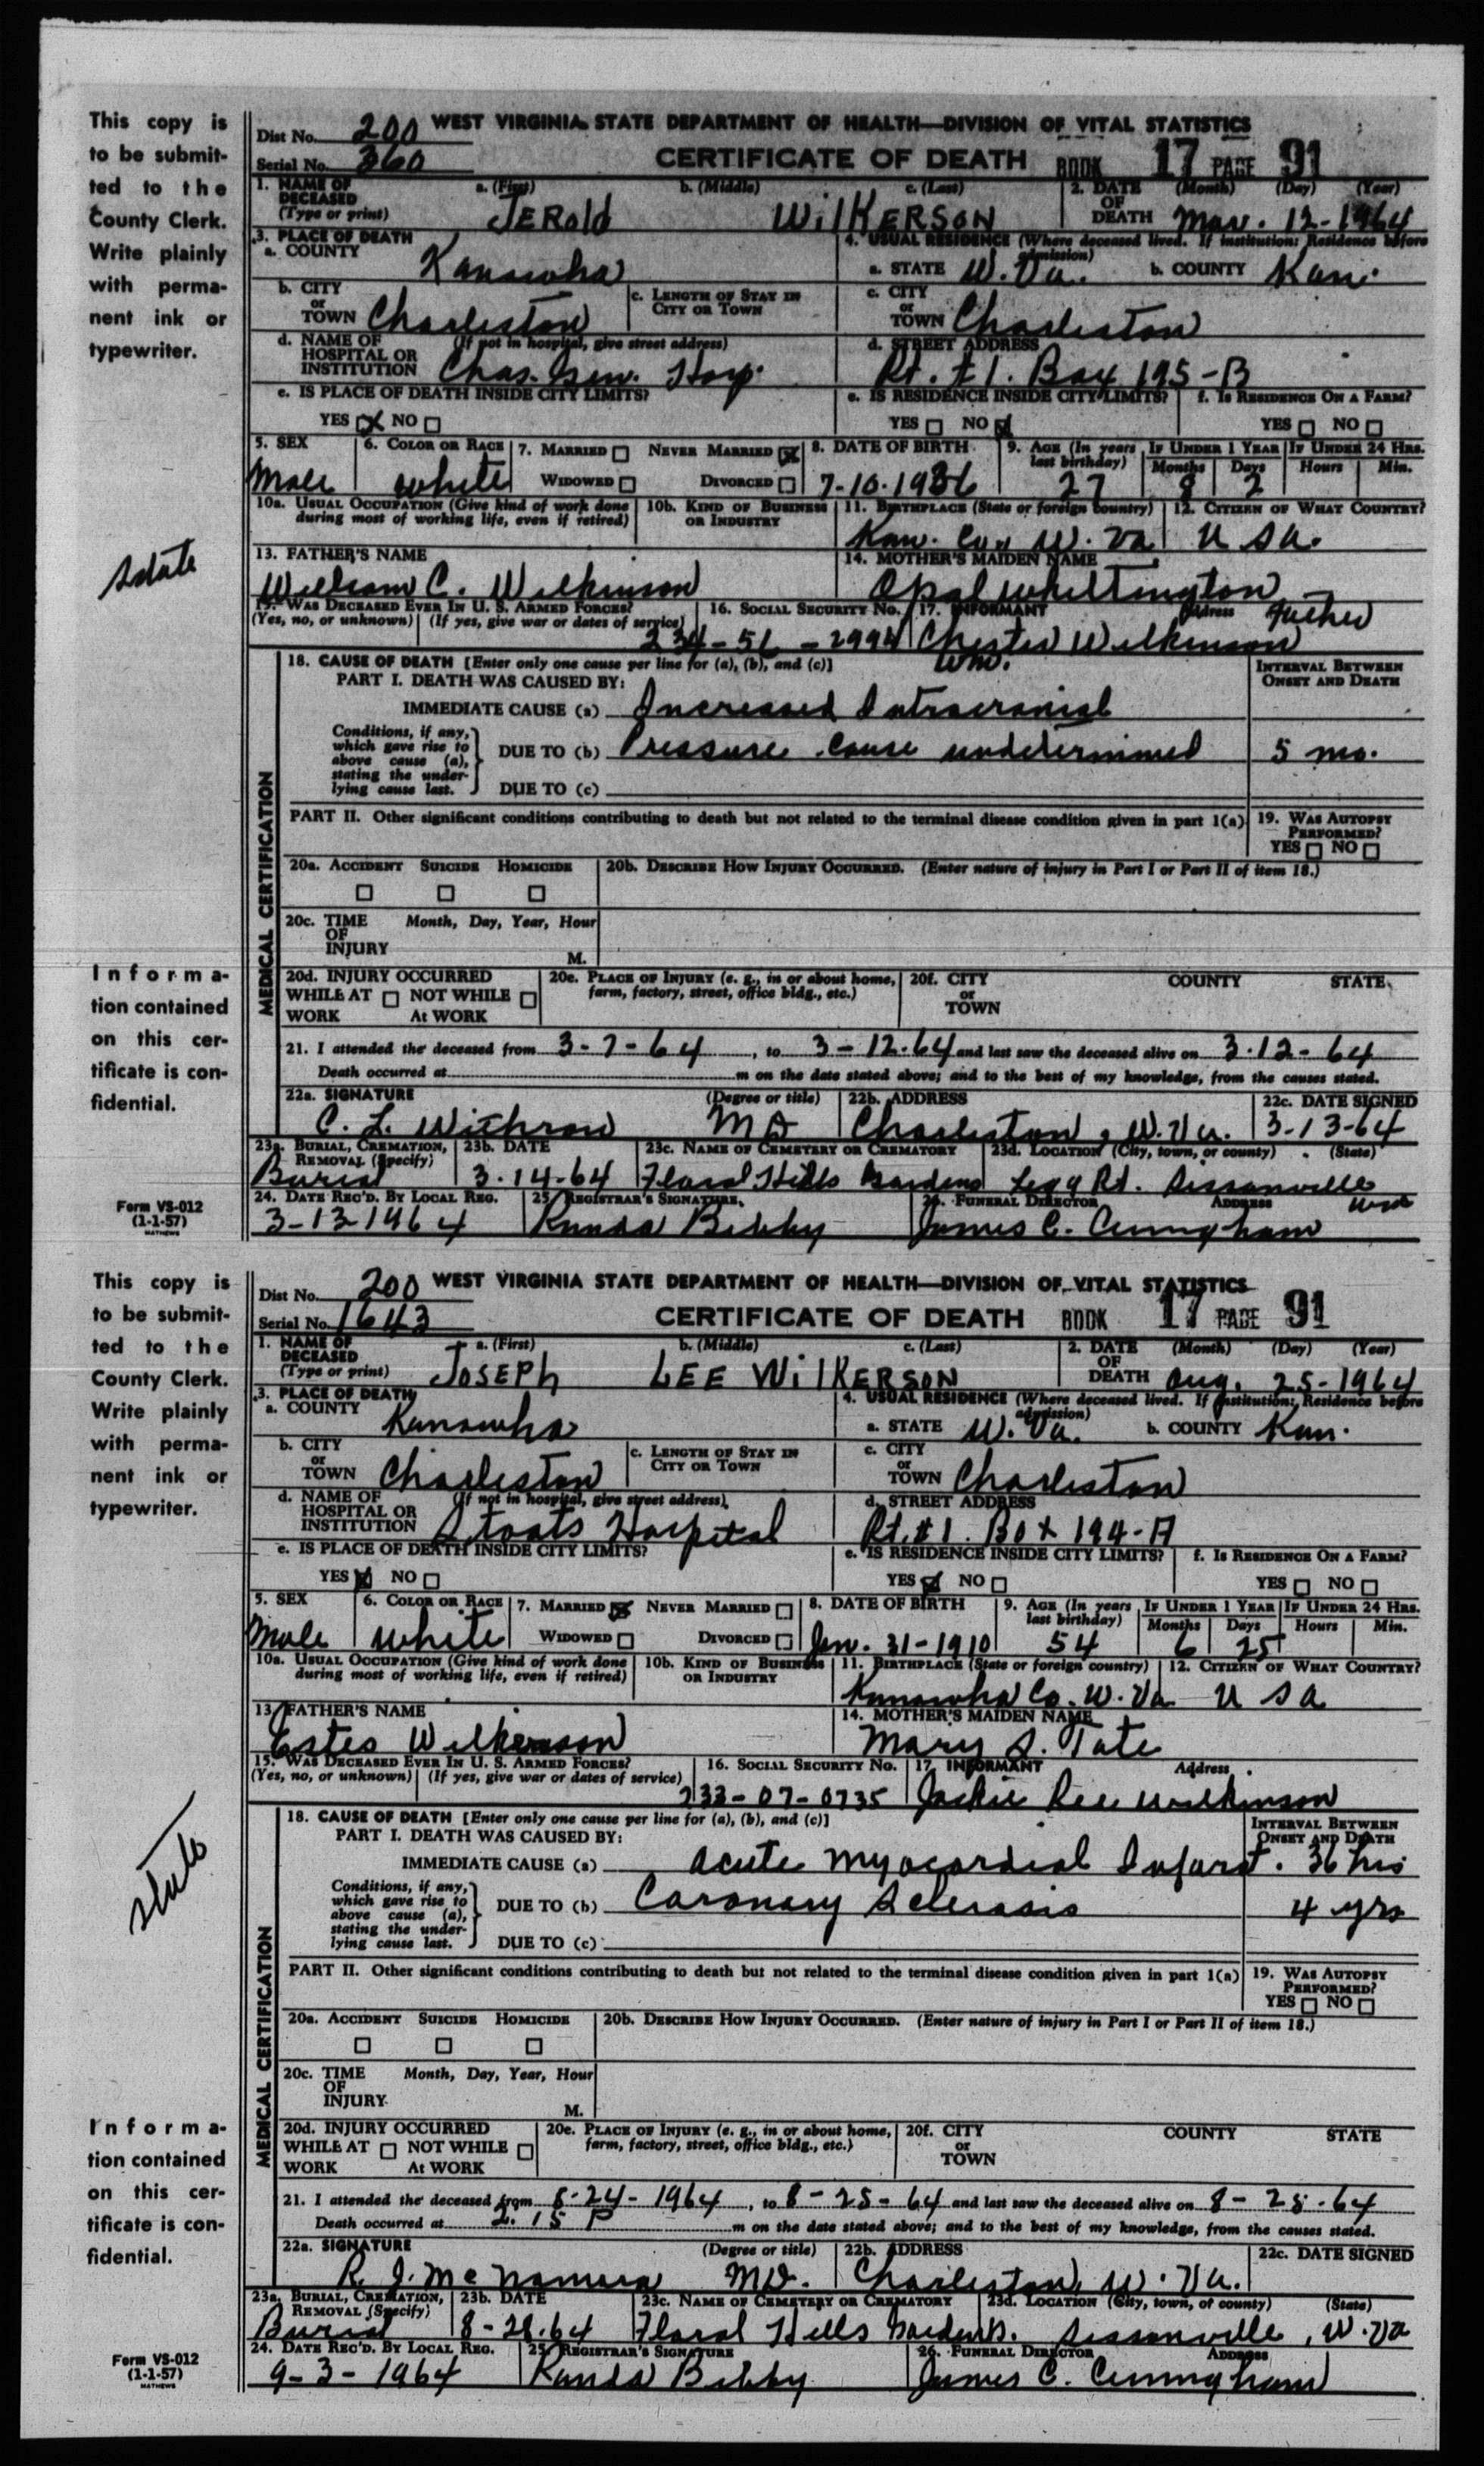 This copy is
to be submit-
ted to the
County Clerk.
Write plainly
with perma-
nent ink or
typewriter.
state
Informa-
tion contained
on this cer-
tificate is con-
fidential.
Form VS-012
(1-1-57)
MATHEWS
Dist No. 200 WEST VIRGINIA STATE DEPARTMENT OF HEALTH—DIVISION OF VITAL STATISTICS
Serial No. 360 CERTIFICATE OF DEATH BOOK 17 PAGE 91
1. NAME OF DECEASED (Type or print) a. (First) b. (Middle) c. (Last) 2. DATE OF DEATH (Month) (Day) (Year)
JEROld WilKERSON Mar. 12-1964
3. PLACE OF DEATH 4. USUAL RESIDENCE (Where deceased lived. If institution: Residence before admission)
a. COUNTY Kanawha a. STATE W. Va. b. COUNTY Kan.
b. CITY or TOWN Charleston c. LENGTH OF STAY IN CITY OR TOWN c. CITY or TOWN Charleston
d. NAME OF HOSPITAL OR INSTITUTION (If not in hospital, give street address) Chas. Gen. Hosp. d. STREET ADDRESS Rt. #1. Box 195-B
e. IS PLACE OF DEATH INSIDE CITY LIMITS? e. IS RESIDENCE INSIDE CITY LIMITS? f. IS RESIDENCE ON A FARM?
YES NO YES NO YES NO
5. SEX 6. COLOR OR RACE 7. MARRIED NEVER MARRIED 8. DATE OF BIRTH 9. AGE (In years last birthday) IF UNDER 1 YEAR IF UNDER 24 HRS.
Months Days Hours Min.
Male white WIDOWED DIVORCED 7-10-1936 27 8 2
10a. USUAL OCCUPATION (Give kind of work done during most of working life, even if retired) 10b. KIND OF BUSINESS OR INDUSTRY 11. BIRTHPLACE (State or foreign country) 12. CITIZEN OF WHAT COUNTRY?
Kan. Co. W. Va. U S A.
13. FATHER'S NAME 14. MOTHER'S MAIDEN NAME
William C. Wilkinson Opal Whittington
15. WAS DECEASED EVER IN U. S. ARMED FORCES? 16. SOCIAL SECURITY NO. 17. INFORMANT Address Father
(Yes, no, or unknown) (If yes, give war or dates of service) 234-56-2994 Chester Wilkinson
Wm.
18. CAUSE OF DEATH [Enter only one cause per line for (a), (b), and (c)] INTERVAL BETWEEN ONSET AND DEATH
PART I. DEATH WAS CAUSED BY:
IMMEDIATE CAUSE (a) Increased Intracranial
Conditions, if any, which gave rise to above cause (a), stating the underlying cause last.
DUE TO (b) Pressure cause undetermined 5 mo.
DUE TO (c)
PART II. Other significant conditions contributing to death but not related to the terminal disease condition given in part 1(a) 19. WAS AUTOPSY PERFORMED?
YES NO
20a. ACCIDENT SUICIDE HOMICIDE 20b. DESCRIBE HOW INJURY OCCURRED. (Enter nature of injury in Part I or Part II of item 18.)
20c. TIME OF INJURY Month, Day, Year, Hour M.
MEDICAL CERTIFICATION
20d. INJURY OCCURRED WHILE AT WORK NOT WHILE At WORK 20e. PLACE OF INJURY (e. g., in or about home, farm, factory, street, office bldg., etc.) 20f. CITY or TOWN COUNTY STATE
21. I attended the deceased from 3-7-64, to 3-12-64 and last saw the deceased alive on 3-12-64
Death occurred at m on the date stated above; and to the best of my knowledge, from the causes stated.
22a. SIGNATURE (Degree or title) 22b. ADDRESS 22c. DATE SIGNED
C. L. Withrow MD Charleston, W. Va. 3-13-64
23a. BURIAL, CREMATION, REMOVAL (Specify) 23b. DATE 23c. NAME OF CEMETERY OR CREMATORY 23d. LOCATION (City, town, or county) (State)
Burial 3-14-64 Floral Hills Gardens Rd. Sissonville
24. DATE REC'D. BY LOCAL REG. 25. REGISTRAR'S SIGNATURE 26. FUNERAL DIRECTOR ADDRESS
3-13-1964 Runda Bibby James C. Cunningham
This copy is
to be submit-
ted to the
County Clerk.
Write plainly
with perma-
nent ink or
typewriter.
state
Informa-
tion contained
on this cer-
tificate is con-
fidential.
Form VS-012
(1-1-57)
MATHEWS
Dist No. 200 WEST VIRGINIA STATE DEPARTMENT OF HEALTH—DIVISION OF VITAL STATISTICS
Serial No. 1643 CERTIFICATE OF DEATH BOOK 17 PAGE 91
1. NAME OF DECEASED (Type or print) a. (First) b. (Middle) c. (Last) 2. DATE OF DEATH (Month) (Day) (Year)
JOSEPh LEE WilKERSON Aug. 25-1964
3. PLACE OF DEATH 4. USUAL RESIDENCE (Where deceased lived. If institution: Residence before admission)
a. COUNTY Kanawha a. STATE W. Va. b. COUNTY Kan.
b. CITY or TOWN Charleston c. LENGTH OF STAY IN CITY OR TOWN c. CITY or TOWN Charleston
d. NAME OF HOSPITAL OR INSTITUTION (If not in hospital, give street address) Staats Hospital d. STREET ADDRESS Rt. #1. Box 194-A
e. IS PLACE OF DEATH INSIDE CITY LIMITS? e. IS RESIDENCE INSIDE CITY LIMITS? f. IS RESIDENCE ON A FARM?
YES NO YES NO YES NO
5. SEX 6. COLOR OR RACE 7. MARRIED NEVER MARRIED 8. DATE OF BIRTH 9. AGE (In years last birthday) IF UNDER 1 YEAR IF UNDER 24 HRS.
Months Days Hours Min.
Male white WIDOWED DIVORCED Jan. 31-1910 54 6 25
10a. USUAL OCCUPATION (Give kind of work done during most of working life, even if retired) 10b. KIND OF BUSINESS OR INDUSTRY 11. BIRTHPLACE (State or foreign country) 12. CITIZEN OF WHAT COUNTRY?
Kanawha Co. W. Va U S A
13. FATHER'S NAME 14. MOTHER'S MAIDEN NAME
Estes Wilkerson Mary S. Tate
15. WAS DECEASED EVER IN U. S. ARMED FORCES? 16. SOCIAL SECURITY NO. 17. INFORMANT Address
(Yes, no, or unknown) (If yes, give war or dates of service) 233-07-0735 Jackie Lee Wilkinson
18. CAUSE OF DEATH [Enter only one cause per line for (a), (b), and (c)] INTERVAL BETWEEN ONSET AND DEATH
PART I. DEATH WAS CAUSED BY:
IMMEDIATE CAUSE (a) Acute Myocardial Infarct. 36 hrs
Conditions, if any, which gave rise to above cause (a), stating the underlying cause last.
DUE TO (b) Coronary Sclerosis 4 yrs
DUE TO (c)
PART II. Other significant conditions contributing to death but not related to the terminal disease condition given in part 1(a) 19. WAS AUTOPSY PERFORMED?
YES NO
20a. ACCIDENT SUICIDE HOMICIDE 20b. DESCRIBE HOW INJURY OCCURRED. (Enter nature of injury in Part I or Part II of item 18.)
20c. TIME OF INJURY Month, Day, Year, Hour M.
MEDICAL CERTIFICATION
20d. INJURY OCCURRED WHILE AT WORK NOT WHILE At WORK 20e. PLACE OF INJURY (e. g., in or about home, farm, factory, street, office bldg., etc.) 20f. CITY or TOWN COUNTY STATE
21. I attended the deceased from 8-24-1964, to 8-25-64 and last saw the deceased alive on 8-25-64
Death occurred at 2.15 P m on the date stated above; and to the best of my knowledge, from the causes stated.
22a. SIGNATURE (Degree or title) 22b. ADDRESS 22c. DATE SIGNED
R. J. McNamara MD. Charleston, W. Va.
23a. BURIAL, CREMATION, REMOVAL (Specify) 23b. DATE 23c. NAME OF CEMETERY OR CREMATORY 23d. LOCATION (City, town, or county) (State)
Burial 8-28-64 Floral Hills Gardens. Sissonville, W. Va
24. DATE REC'D. BY LOCAL REG. 25. REGISTRAR'S SIGNATURE 26. FUNERAL DIRECTOR ADDRESS
9-3-1964 Runda Bibby James C. Cunningham